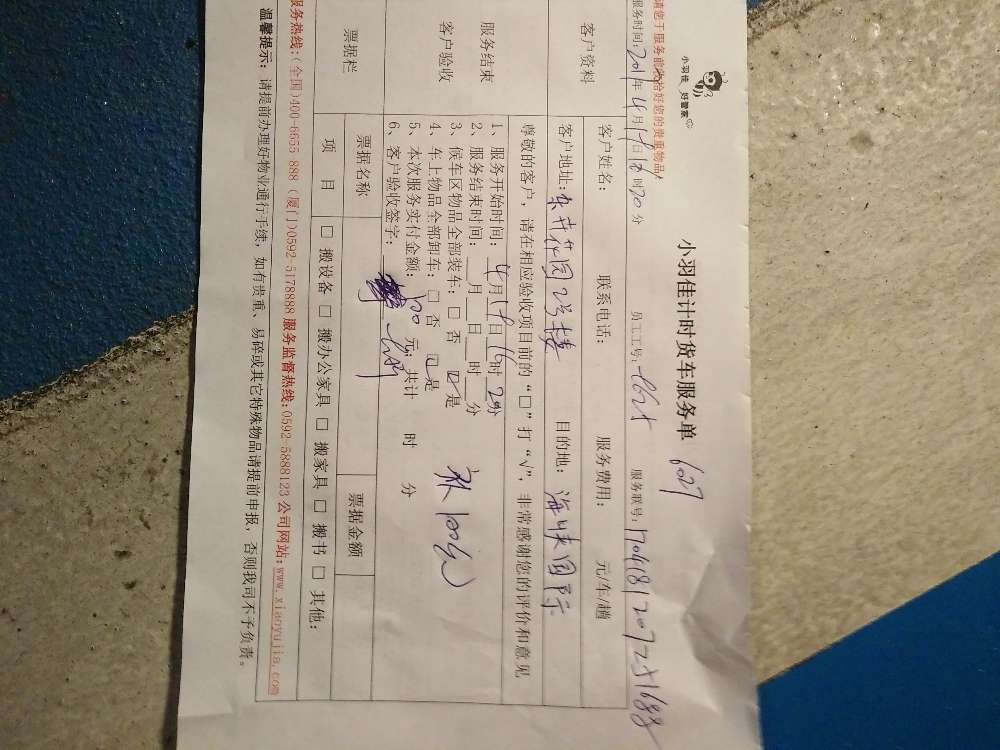 请您于服务前收拾好您的贵重物品!
小羽佳 好管家
小羽佳计时货车服务单 6027
服务时间: 2017年4月18日16时20分 员工工号: 服务联号: 1704181207251688
客户资料
客户姓名: 联系电话: 服务费用: 元/车/趟
客户地址: 花园2号楼 目的地: 海峡国际
尊敬的客户，请在相应验收项目前的“□”打“√”，非常感谢您的评价和意见
服务结束
客户验收
1、服务开始时间: 4月18日16时20分
2、服务结束时间: 月 日 时 分
3、候车区物品全部装车: □ 否 ☑是
4、车上物品全部卸车: □ 否 ☑是
5、本次服务实付金额: 元; 共计 时 分
6、客户验收签字:
补100元
票据栏
票据名称 票据金额
项 目 □ 搬设备 □ 搬办公家具 □ 搬家具 □ 搬书 □ 其他:
服务热线:(全国)400-6655 888 (厦门)0592-5178888 服务监督热线:0592-5888123 公司网站:www.xiaoyujia.com
温馨提示: 请提前办理好物业通行手续，如有贵重、易碎或其它特殊物品请提前申报，否则我司不予负责。